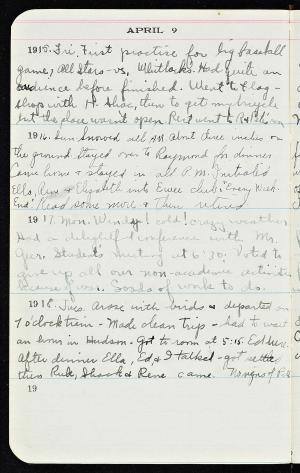 APRIL 9
1915. Fri. First practise for big baseball
game, All Stars vs. Whitlocks. Had quite an
audience before finished. Went to
shop with H. Shac, then to get my bicycle
but the place wasn't open. Red went to
1916. Sun. Snowed all AM. About three inches on
the ground. Stayed over to Raymond for dinner
Came home & stayed in all P.M. Initiated
Ella, & Elizabeth into club: "Every Week
End" Read some more & then retired
1917. Mon. Windy! cold! crazy weather
Had a delightful conference with Mr.
Student's meeting at 6:30. Voted to
give up all our non-academic activities
because of war. Loads of work to do.
1918. Tues. Arose with birds & departed on
7 o'clock train - Made clean trip - had to wait
an hour in Hudson. Got to room at 5:15. Ed here.
After dinner Ella, Ed, & I talked - got settled
then Rub, Shack & Rene came. No signs of
19